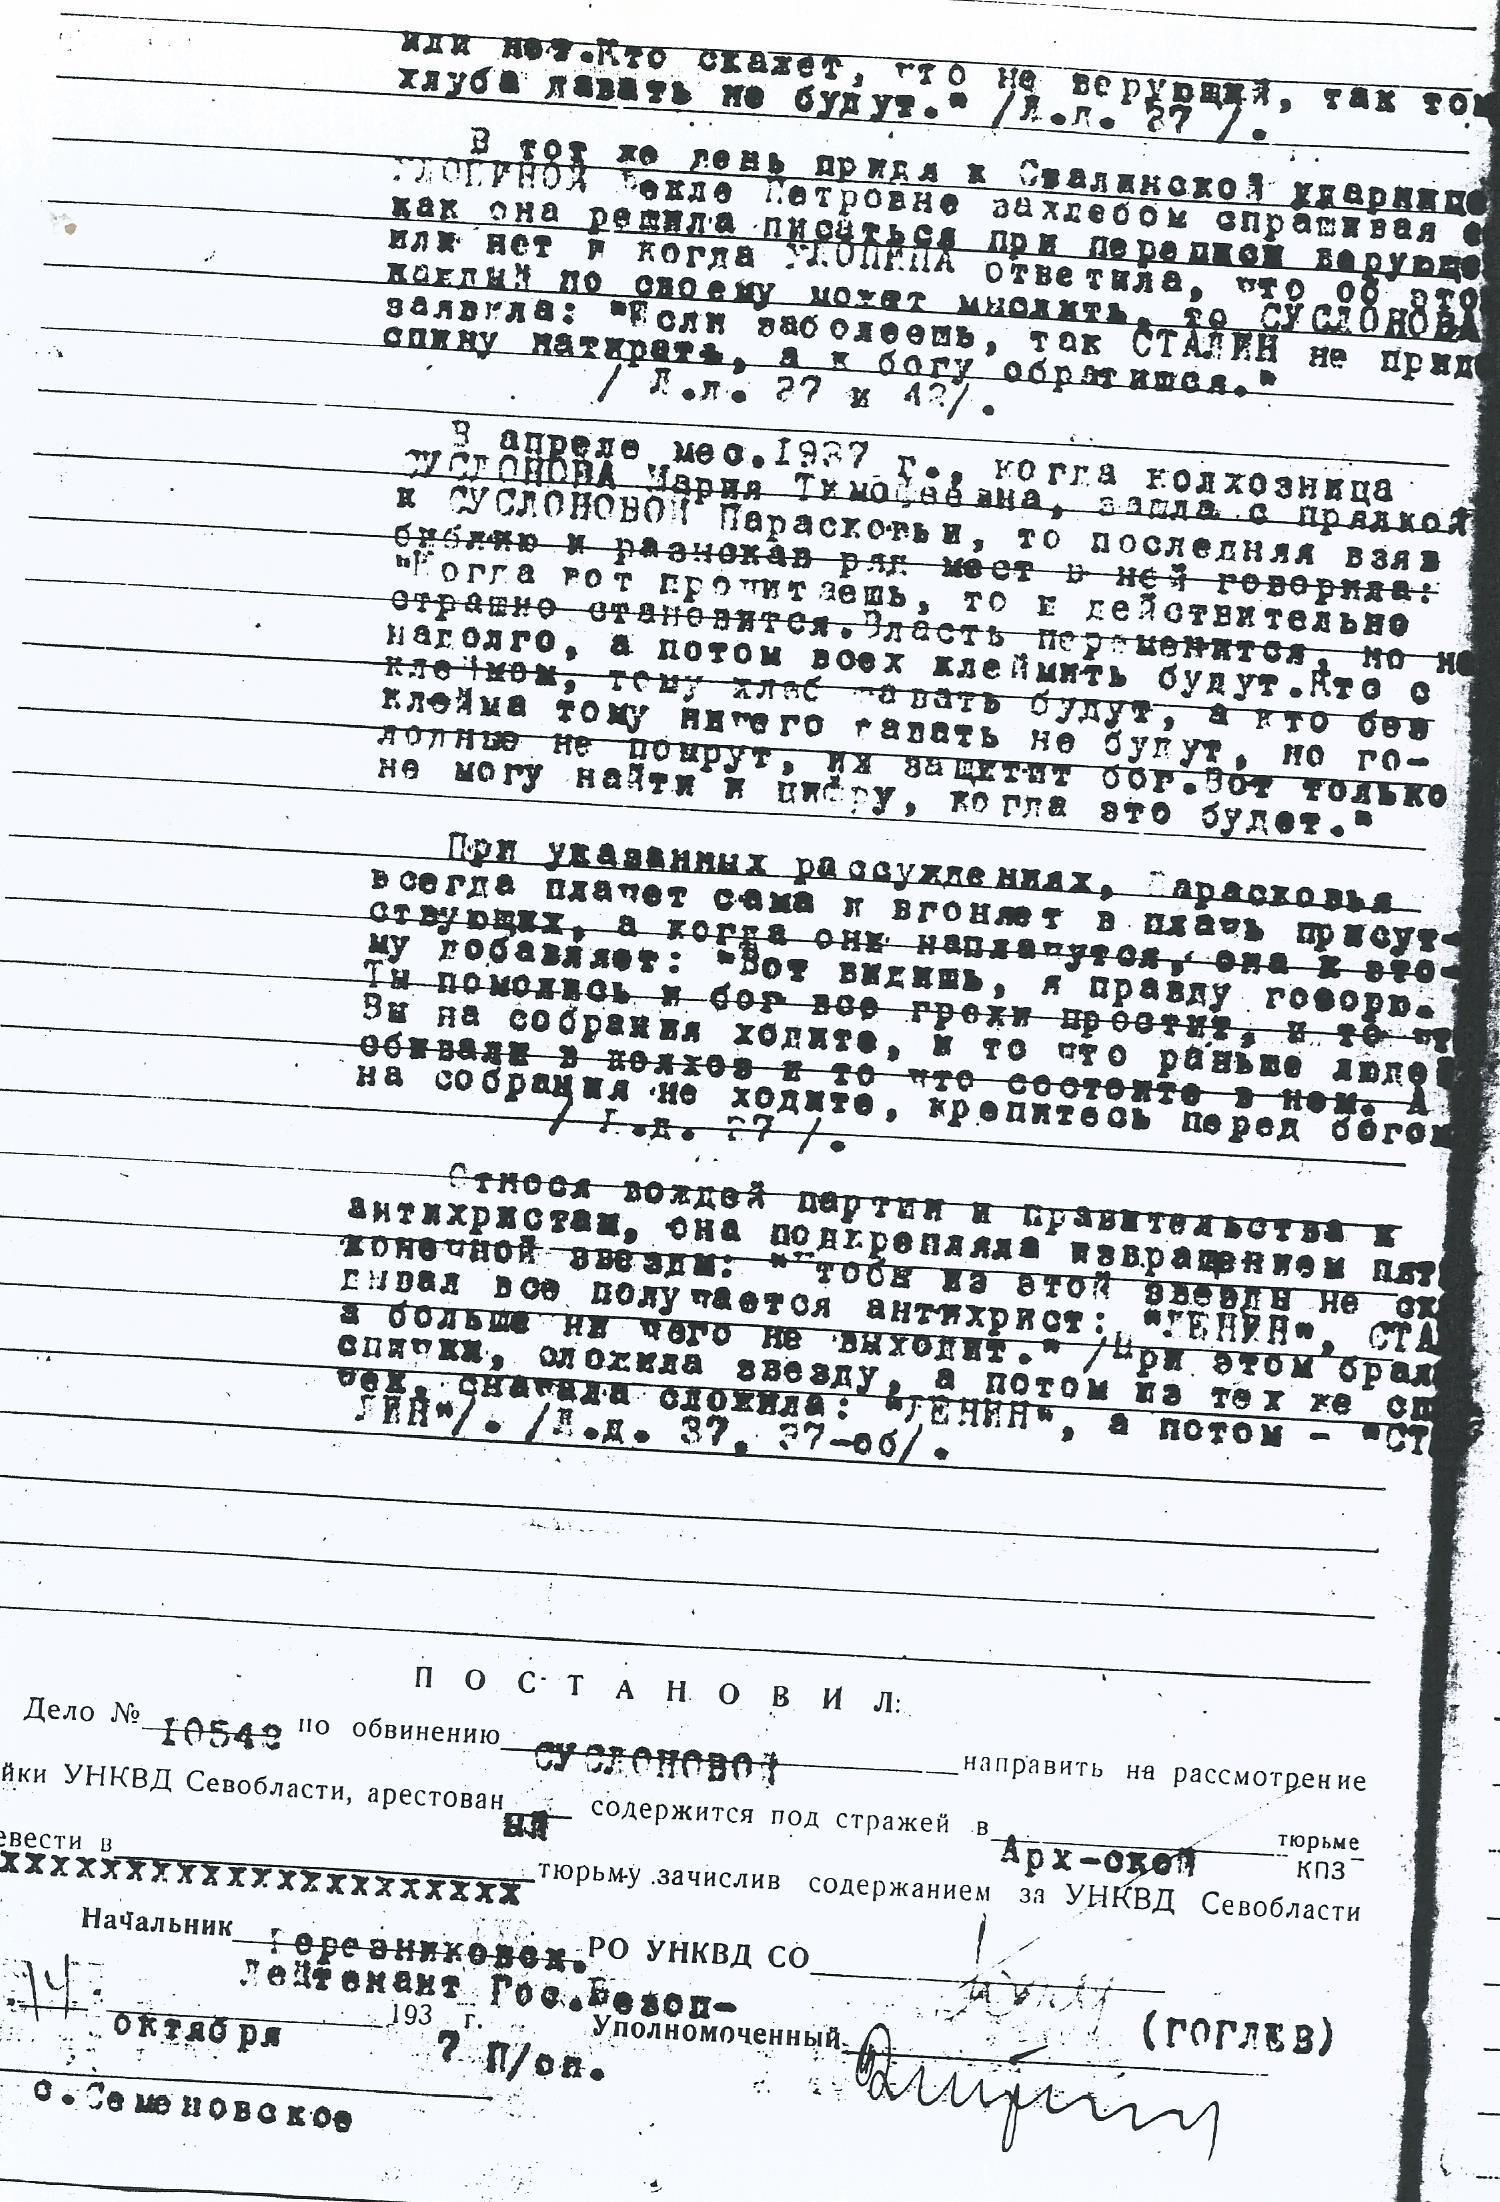 или нет.Кто скажет, что не верующий, так том
хлуба давать не будут." /Л.д. 37 /.
В тот же день придя к Сталинской ударнице
Фекле Петровне захлебом спрашивая е
как она решила писаться при переписи верующе
или нет и когда ответила, что об это
каждый по своему может мыслить, то СУСЛОНОВА
заявила: "Если заболеешь, так СТАЛИН не приде
спину натирать, а к богу обратишся."
/ Л.д. 37 и 42/.
В апреле мес.1937 г., когда колхозница
СУСЛОНОВА Мария Тимофеевна, зашла с прялкой
к СУСЛОНОВОЙ Парасковьи, то последняя взяв
библию и разыскав ряд мест в ней говорила:
"Когда вот прочитаешь, то и действительно
страшно становится.Власть переменится, но не
надолго, а потом всех клеймить будут.Кто с
клеймом, тому хлеб давать будут, а кто без
клейма тому ничего давать не будут, но го-
лодные не помрут, их защитит бог.Вот только
не могу найти и цифру, когда это будет."
При указанных рассуждениях, Парасковья
всегда плачет сама и вгоняет в плачь присут-
ствующих, а когда они наплачутся, она к это-
му добавляет: "Вот видишь, я правду говорю.
Ты помолись и бог все грехи простит, и то чт
Вы на собрания ходите, и то что раньше людей
сбивали в колхоз и то что состоите в нем. А
на собрания не ходите, крепитесь перед богом
/ Л.д. 37 /.
Относя вождей партии и правительства к
антихристам, она подкрепляла извращением пяти
конечной звезды: "Чтобы из этой звезды не скл
дывал все получается антихрист: "ЛЕНИН", СТА
а больше ни чего не выходит." /При этом брала
спички, сложила звезду, а потом из тех же сп
чек, сначала сложила: "ЛЕНИН", а потом - "СТ
ЛИН"/. /Л.д. 37, 37-об/.
ПОСТАНОВИЛ:
Дело № 10542 по обвинению СУСЛОНОВОЙ направить на рассмотрение
йки УНКВД Севобласти, арестован ная содержится под стражей в Арх-ской тюрьме
КПЗ
евести в ХХХХХХХХХХХХХХХХХХХХХХ тюрьму зачислив содержанием за УНКВД Севобласти
Начальник Березниковск. РО УНКВД СО
Лейтенант Гос.Безоп-
14 октября 1937 г. Уполномоченный (ГОГЛЕВ)
П/сп.
с.Семеновское